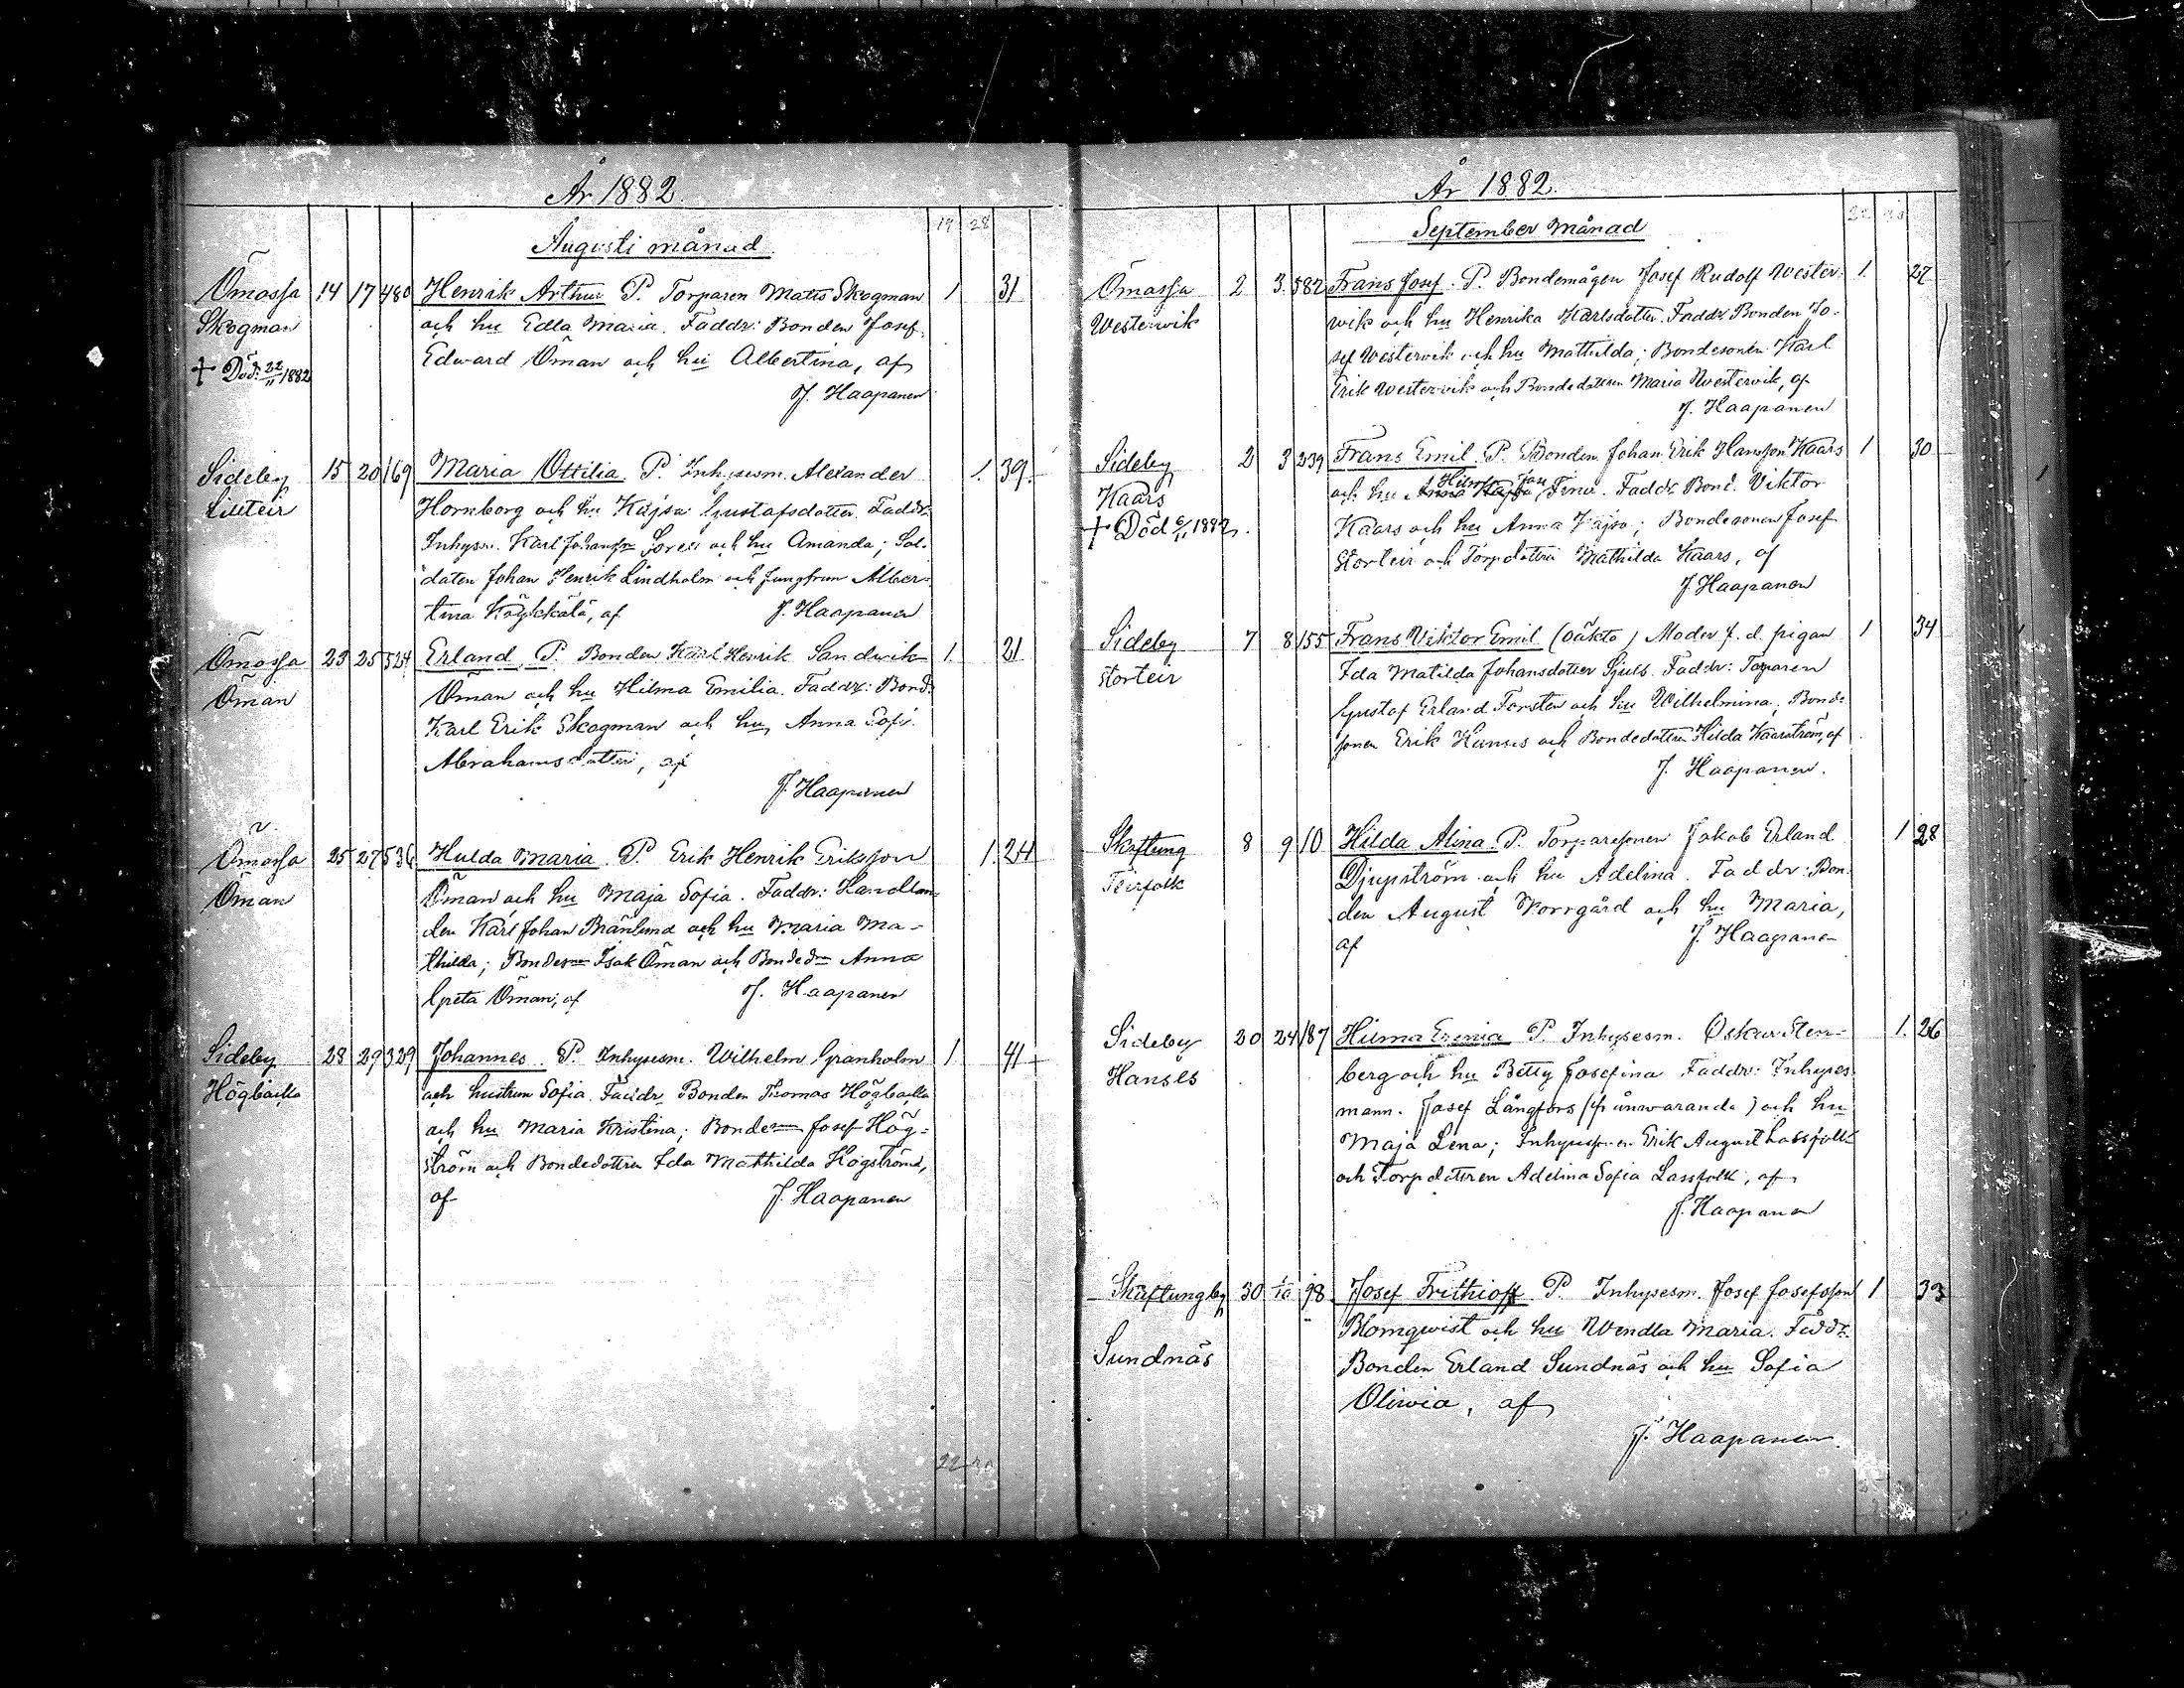 År 1882.
19 28
Augusti månad.
Ömossa 14 17 480 Henrik Arthur P. Torparen Matts Skogman 1 31
Skogman och hu Edla Maria. Faddr: Bonden Josef
Edward Öman och hu Albertina, af
+ Död 22/11 1882
J. Haapanen
Sideby 15 20 169 Maria Ottilia. P. Inhysesm. Alexander 1. 39.
Lillteir Hornborg och hu Kajsa Gustafsdotter. Faddr.
Inhysm. Karl Johansson och hu Amanda; Sol-
daten Johan Henrik Lindholm och Jungfrun Alber-
tina Köykkälä, af J. Haapanen
Ömossa 23 25 524 Erland. P. Bonden Karl Henrik Sandwik 1. 21
Öman Öman och hu Hilma Emilia. Faddr: Bond.
Karl Erik Skogman och hu Anna Sofi
Abrahamsdotter, af
J. Haapanen
Ömossa 25 27 536 Hulda Maria. P. Erik Henrik Eriksson 1. 24
Öman Öman och hu Maja Sofia. Faddr: Handlan-
den Karl Johan Bränlund och hu Maria Ma-
thilda; Bondeson Isak Öman och Bonded. Anna
Greta Öman; af J. Haapanen
Sideby 28 29 329 Johannes. P. Inhysesm. Wilhelm Granholm 1. 41
Högbacka och hustrun Sofia. Faddr. Bonden Thomas Högbacka
och hu Maria Kristina; Bondeson Josef Hög-
ström och Bondedottren Ida Mathilda Högström,
af J. Haapanen
År 1882.
September Månad
Ömossa 2 3. 582 Frans Josef. P. Bondemågen Josef Rudolf Wester- 1. 27
Westerwik wik och hu Henrika Karlsdotter. Faddr Bonden Jo-
sef Westerwik och hu Mathilda; Bondesonen Karl
Erik Westerwik och Bondedottren Maria Westerwik, af
J. Haapanen
Sideby 2 3 239 Frans Emil. P. Bonden Johan Erik Hansson Kaars 1 30
Kaars och hu Anna Kajsa. Faddr Bond. Viktor
+ Död 6/11 1882. Kaars och hu Anna Kajsa; Bondesonen Josef
Storteir och Torpdottren Mathilda Kaars, af
J. Haapanen
Sideby 7 8 155 Frans Viktor Emil (oäkta) Moder f. d. pigan 1 34
Storteir Ida Matilda Johansdotter. Faddr: Torparen
Gustaf Erland Forsten och hu Wilhelmina, Bonde
sonen Erik Hanses och Bondedottren Hilda Kaarström, af
J. Haapanen.
Skaftung 8 9 10 Hilda Alina. P. Torparesonen Jakob Erland 1 28
Teirfolk Djupström och hu Adelina. Faddr: Bon-
den August Norrgård och hu Maria,
af J. Haapanen
Sideby 20 24 187 Hilma P. Inhysesm. Oskar Sten- 1. 26
Hanses berg och hu Betty Josefina Faddr: Inhyses
mann. Josef Långfors (frånwarande) och hu
Maja Lena; Inhysesonen Erik August Lassfolk
och Torpdottren Adelina Sofia Lassfolk, af
J. Haapanen
Skaftungby 30 1/10 98 Josef Frithioff P. Inhysesm. Josef Josefsson 1 33
Blomqwist och hu Wendla Maria. Faddr.
Sundnäs Bonden Erland Sundnäs och hu Sofia
Oliwia, af
J. Haapanen.